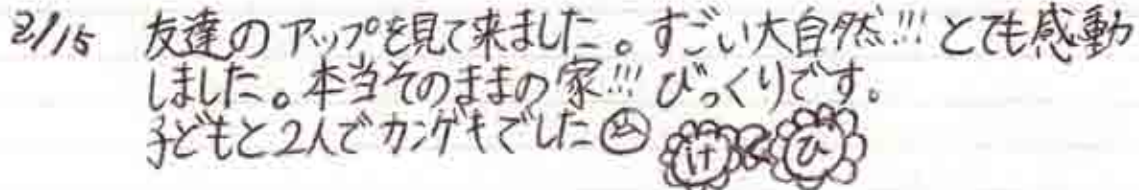 2/15 友達のアップを見て来ました。すごい大自然!!! とても感動
しました。本当そのままの家!!! びっくりです。
子どもと2人でカンゲキでした け ひ